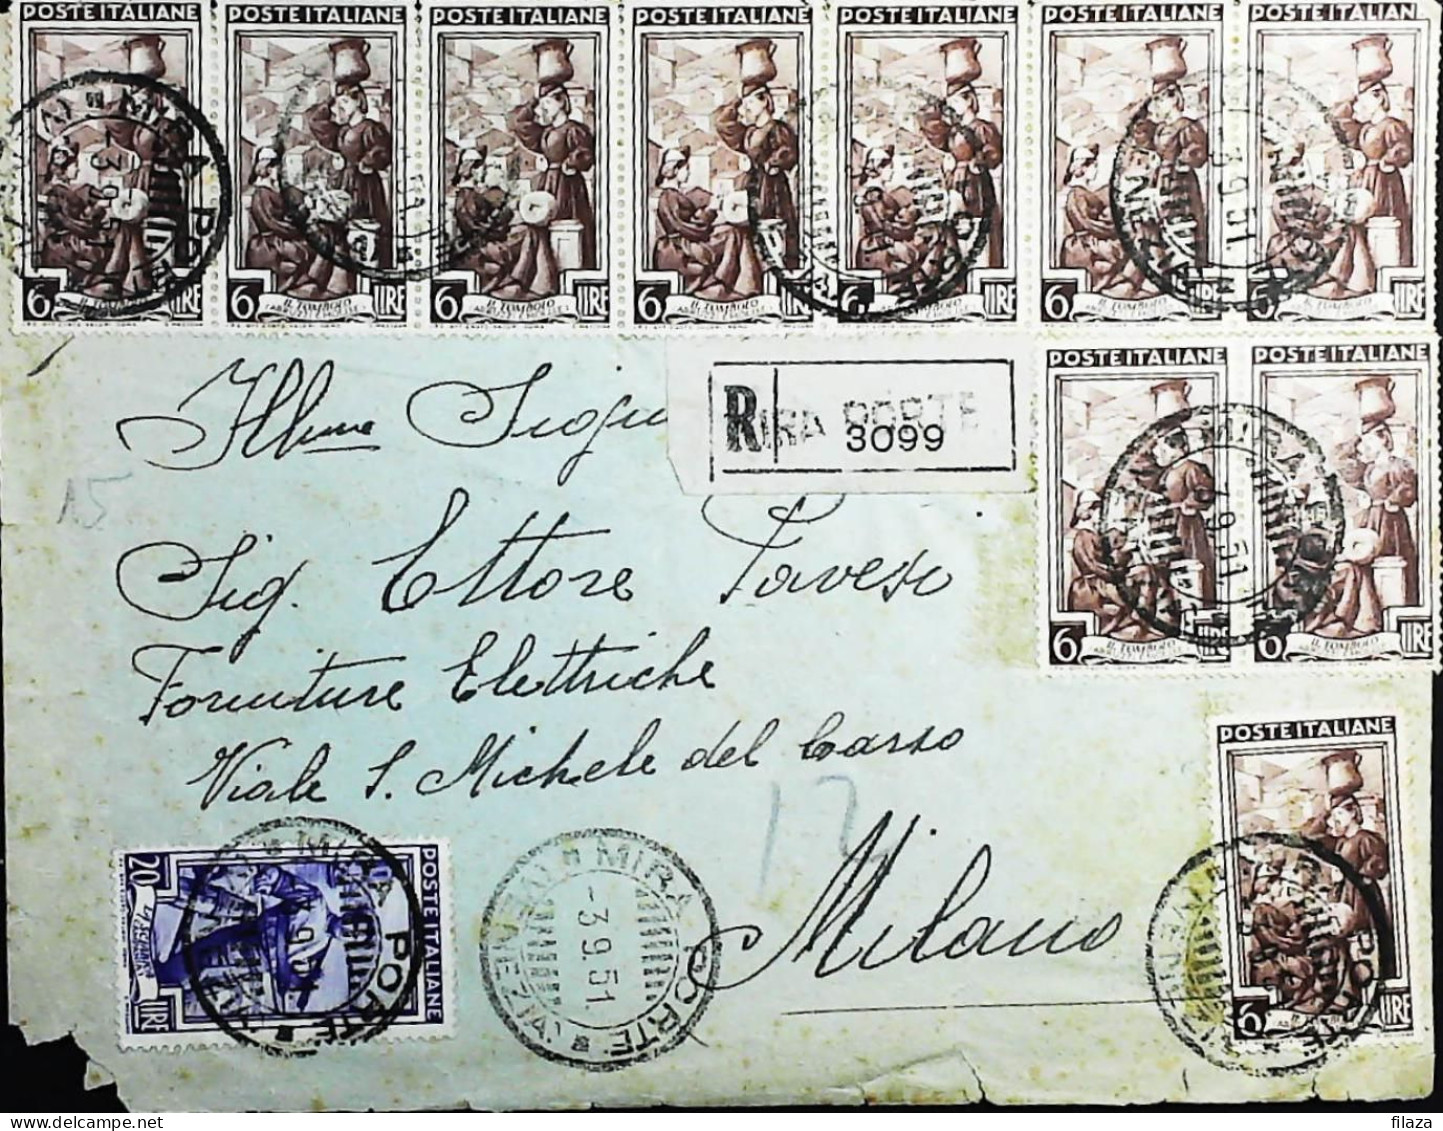 POSTE ITALIANE POSTE ITALIANE POSTE ITALIANE POSTE ITALIANE POSTE ITALIANE POSTE ITALIANE POSTE ITALIAN
MIRA PORTE
6 IL TOMBOLO LIRE 6 IL TOMBOLO LIRE 6 IL TOMBOLO LIRE 6 IL TOMBOLO LIRE 6 IL TOMBOLO LIRE 6 IL TOMBOLO LIRE 6 IL TOMBOLO LIRE
POSTE ITALIANE POSTE ITALIANE
R MIRA PORTE
3099
MIRA
6 IL TOMBOLO LIRE 6 IL TOMBOLO LIRE
15
Ill.mo Signor
Sig. Ettore Pavesi
Forniture Elettriche
Viale S. Michele del Carso
Milano
POSTE ITALIANE
6 LIRE
20 LIRE
POSTE ITALIANE
MIRA PORTE
MIRA PORTE (VENEZIA)
-3.9.51
filaza
www.delcampe.net